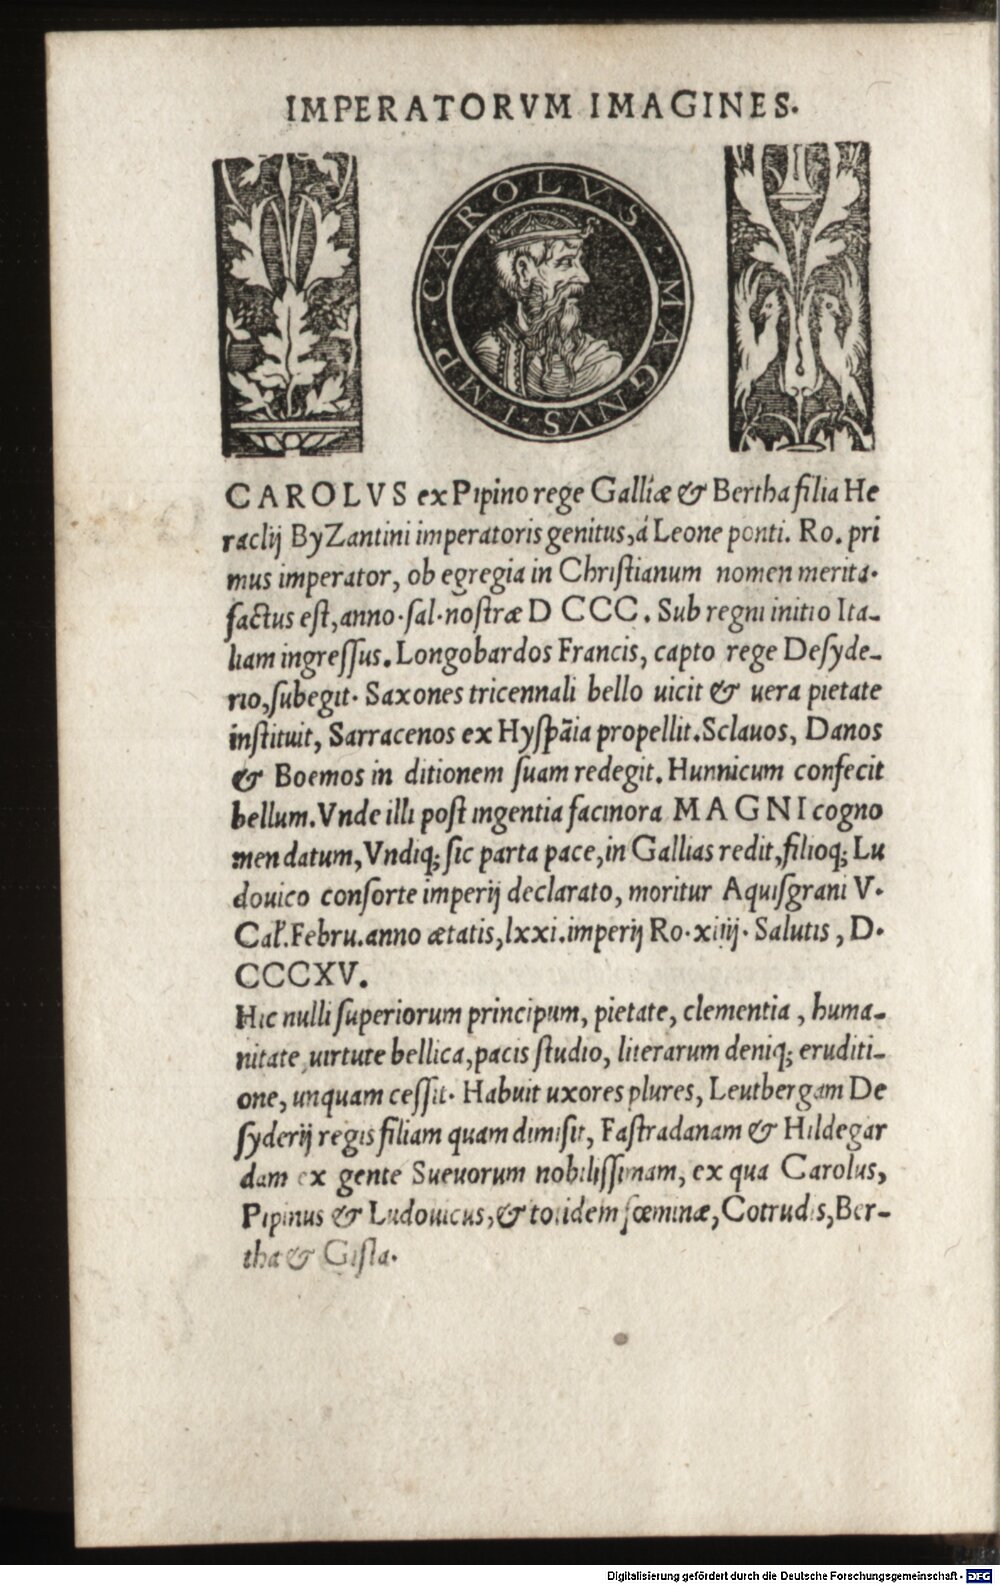 IMPERATORVM IMAGINES.
CAROLVS · MAGNVS · IMP ·
CAROLVS ex Pipino rege Galliæ & Bertha filia He
raclij ByZantini imperatoris genitus, á Leone ponti. Ro. pri
mus imperator, ob egregia in Christianum nomen merita·
factus est, anno·sal·nostræ D CCC. Sub regni initio Ita-
liam ingressus. Longobardos Francis, capto rege Desyde-
rio, subegit· Saxones tricennali bello uicit & uera pietate
instituit, Sarracenos ex Hyspāia propellit. Sclauos, Danos
& Boemos in ditionem suam redegit. Hunnicum confecit
bellum. Vnde illi post ingentia facinora MAGNI cogno
men datum, Vndiq; sic parta pace, in Gallias redit, filioq; Lu
douico consorte imperij declarato, moritur Aquisgrani V·
Cal̄. Febru. anno ætatis, lxxi. imperij Ro·xiiij· Salutis, D·
CCCXV.
Hic nulli superiorum principum, pietate, clementia, huma-
nitate, uirtute bellica, pacis studio, literarum deniq; eruditi-
one, unquam cessit· Habuit uxores plures, Leutbergam De
syderij regis filiam quam dimisit, Fastradanam & Hildegar
dam ex gente Sueuorum nobilissimam, ex qua Carolus,
Pipinus & Ludouicus, & totidem fœminæ, Cotrudis, Ber-
tha & Gisla.
Digitalisierung gefördert durch die Deutsche Forschungsgemeinschaft - DFG